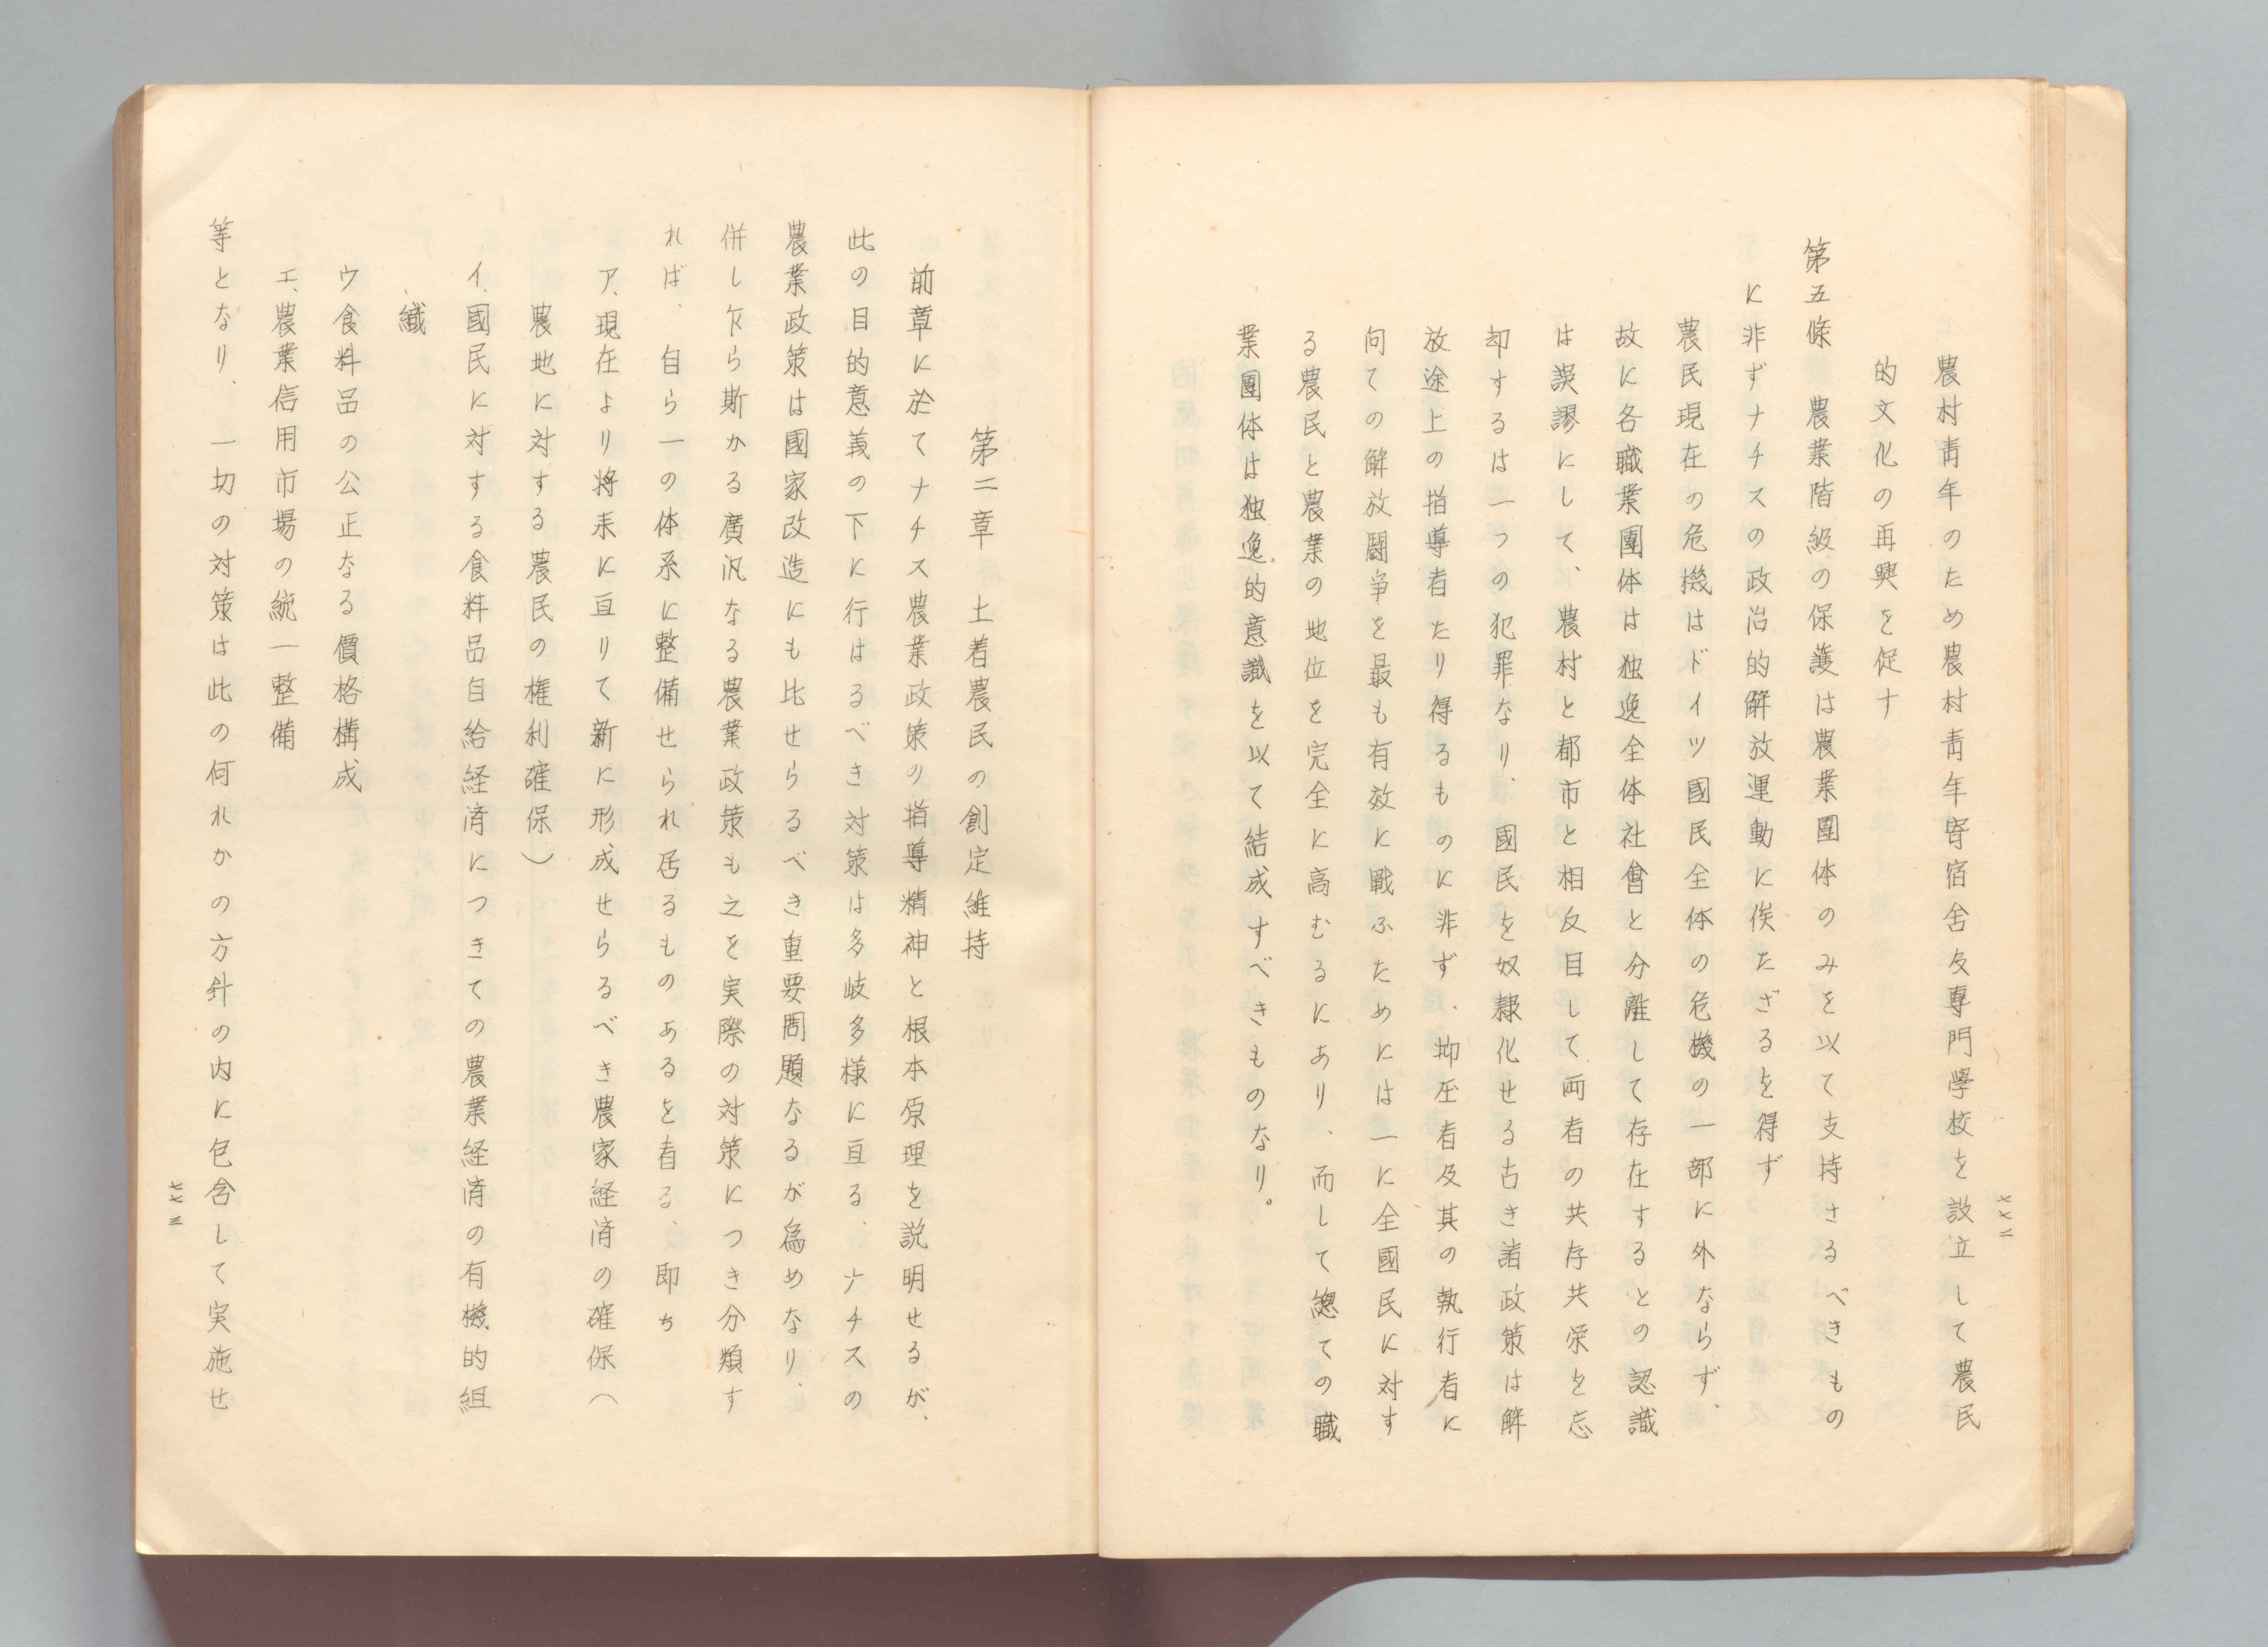 農村青年のため農村青年寄宿舍及專門學校を設立して農民
的文化の再興を促す
第五條　農業階級の保護は農業團体のみを以て支持さるべきもの
に非ずナチスの政治的解放運動に俟たざるを得ず
農民現在の危機はドイツ國民全体の危機の一部に外ならず、
故に各職業團体は独逸全体社會と分離して存在するとの認識
は誤謬にして、農村と都市と相反目して両者の共存共栄を忘
却するは一つの犯罪なり、國民を奴隸化せる古き諸政策は解
放途上の指導者たり得るものに非ず、抑圧者及其の執行者に
向ての解放鬪争を最も有效に戰ふためには一に全國民に対す
る農民と農業の地位を完全に高むるにあり、而して總ての職
業團体は独逸的意識を以て結成すべきものなり。
第二章　土着農民の創定維持
前章に於てナチス農業政策の指導精神と根本原理を説明せるが、
此の目的意義の下に行はるべき対策は多岐多様に亘る、ナチスの
農業政策は國家改造にも比せらるべき重要問題なるが爲めなり、
併し乍ら斯かる廣汎なる農業政策も之を実際の対策につき分類す
れば、自ら一の体系に整備せられ居るものあるを看る、即ち
ア、現在より將来に亘りて新に形成せらるべき農家経済の確保（
農地に対する農民の権利確保）
イ、國民に対する食料品自給経済につきての農業経済の有機的組
織
ウ食料品の公正なる價格構成
エ、農業信用市場の統一整備
等となり、一切の対策は此の何れかの方針の内に包含して実施せ